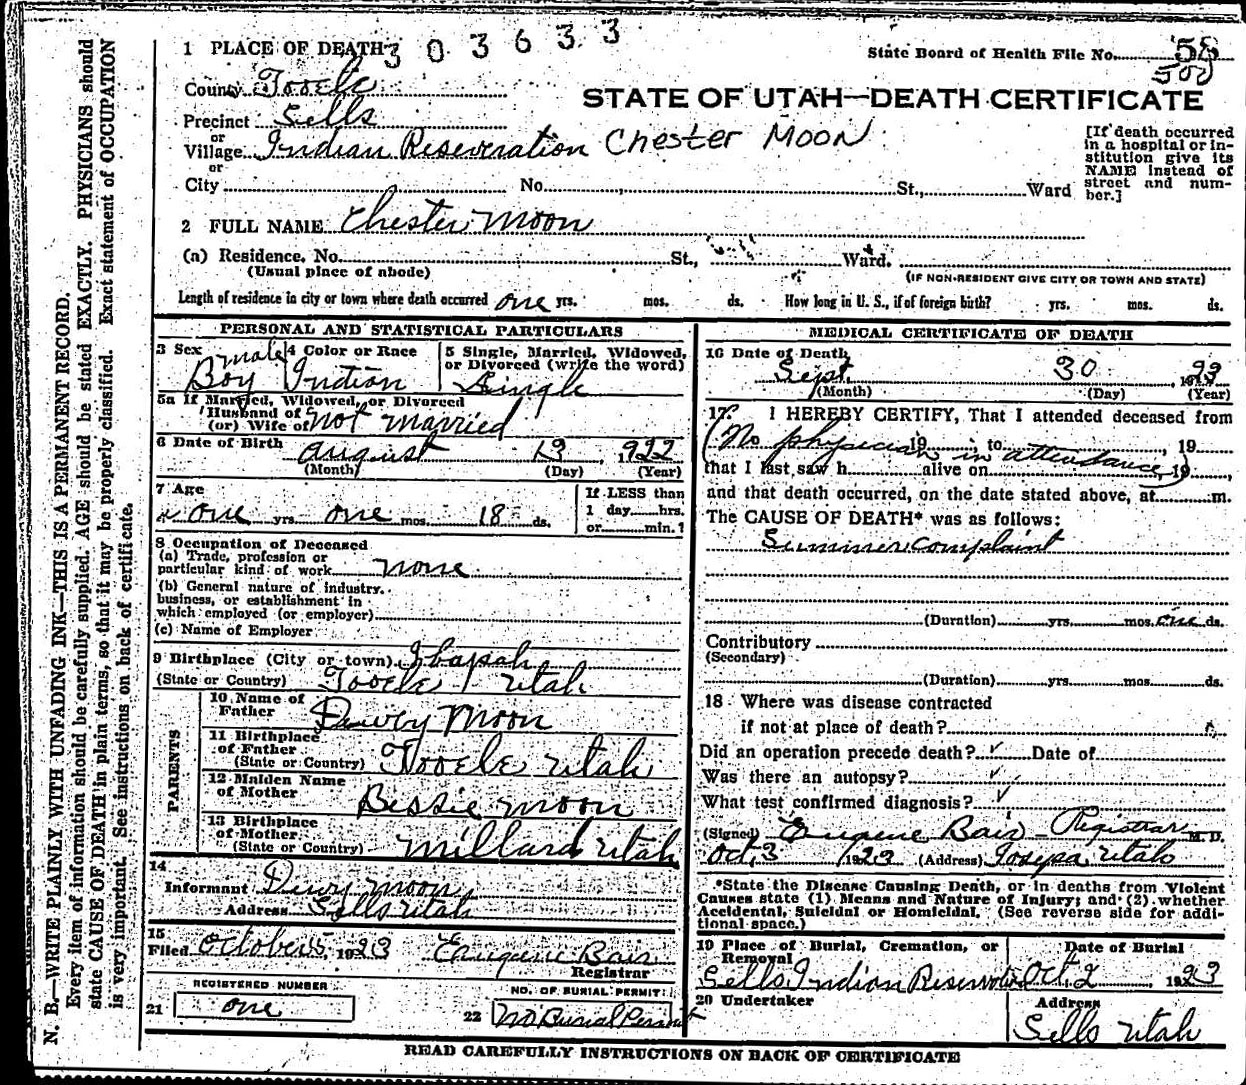 N. B.—WRITE PLAINLY WITH UNFADING INK—THIS IS A PERMANENT RECORD.
Every item of information should be carefully supplied. AGE should be stated EXACTLY. PHYSICIANS should
state CAUSE OF DEATH in plain terms, so that it may be properly classified. Exact statement of OCCUPATION
is very important. See instructions on back of certificate.
1 PLACE OF DEATH 303633
State Board of Health File No. 58
500
County Tooele
STATE OF UTAH—DEATH CERTIFICATE
Precinct Sells
or
Village Indian Reseveration Chester Moon
or
City No. St., Ward
[If death occurred
in a hospital or in-
stitution give its
NAME instead of
street and num-
ber.]
2 FULL NAME Chester Moon
(a) Residence. No. St., Ward.
(Usual place of abode) (IF NON-RESIDENT GIVE CITY OR TOWN AND STATE)
Length of residence in city or town where death occurred one yrs. mos. ds. How long in U. S., if of foreign birth? yrs. mos. ds.
PERSONAL AND STATISTICAL PARTICULARS
3 Sex male Boy
4 Color or Race Indian
5 Single, Married, Widowed,
or Divorced (write the word)
Single
5a If Married, Widowed, or Divorced
Husband of
(or) Wife of not married
6 Date of Birth August 13, 1922
(Month) (Day) (Year)
7 Age
one yrs. one mos. 18 ds.
If LESS than
1 day hrs.
or min.?
8 Occupation of Deceased
(a) Trade, profession or
particular kind of work none
(b) General nature of industry,
business, or establishment in
which employed (or employer)
(c) Name of Employer
9 Birthplace (City or town) Ibapah
(State or Country) Tooele Utah
PARENTS
10 Name of
Father Dewey Moon
11 Birthplace
of Father
(State or Country) Tooele Utah
12 Maiden Name
of Mother Bessie Moon
13 Birthplace
of Mother
(State or Country) Millard Utah
14
Informant Dewy Moon
Address Sells Utah
15
Filed October 5, 1923 Eugene Bair
Registrar
REGISTERED NUMBER
21 one
NO. OF BURIAL PERMIT:
22 No Burial Permit
MEDICAL CERTIFICATE OF DEATH
16 Date of Death
Sept. 30, 1923
(Month) (Day) (Year)
17. I HEREBY CERTIFY, That I attended deceased from
19 to 19
(No physician in attendance)
that I last saw h alive on 19
and that death occurred, on the date stated above, at m.
The CAUSE OF DEATH* was as follows:
Summer complaint
(Duration) yrs. mos. one ds.
Contributory
(Secondary)
(Duration) yrs. mos. ds.
18 Where was disease contracted
if not at place of death?
Did an operation precede death? ✓ Date of
Was there an autopsy? ✓
What test confirmed diagnosis? ✓
(Signed) Eugene Bair - Registrar M. D.
Oct, 3 1923 (Address) Iosepa Utah
*State the Disease Causing Death, or in deaths from Violent
Causes state (1) Means and Nature of Injury; and (2) whether
Accidental, Suicidal or Homicidal. (See reverse side for addi-
tional space.)
19 Place of Burial, Cremation, or
Removal
Sells Indian Reservation
Date of Burial
Oct, 2 1923
20 Undertaker
Address
Sells Utah
READ CAREFULLY INSTRUCTIONS ON BACK OF CERTIFICATE